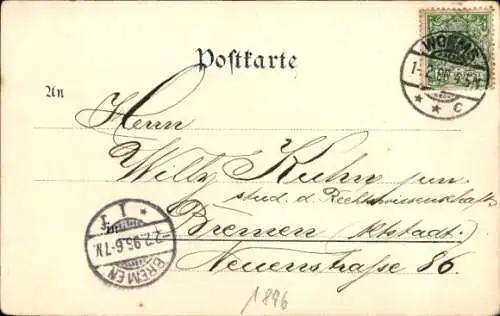 Postkarte
WORMS
1-2.96.4-5N.
* * c
An
Herrn
Willy Kuhn jun.
stud. d. Rechtswissenschaft
Bremen (Altstadt).
Neuenstraße 86.
* I I
2.2.96.6-7N.
BREMEN
1896